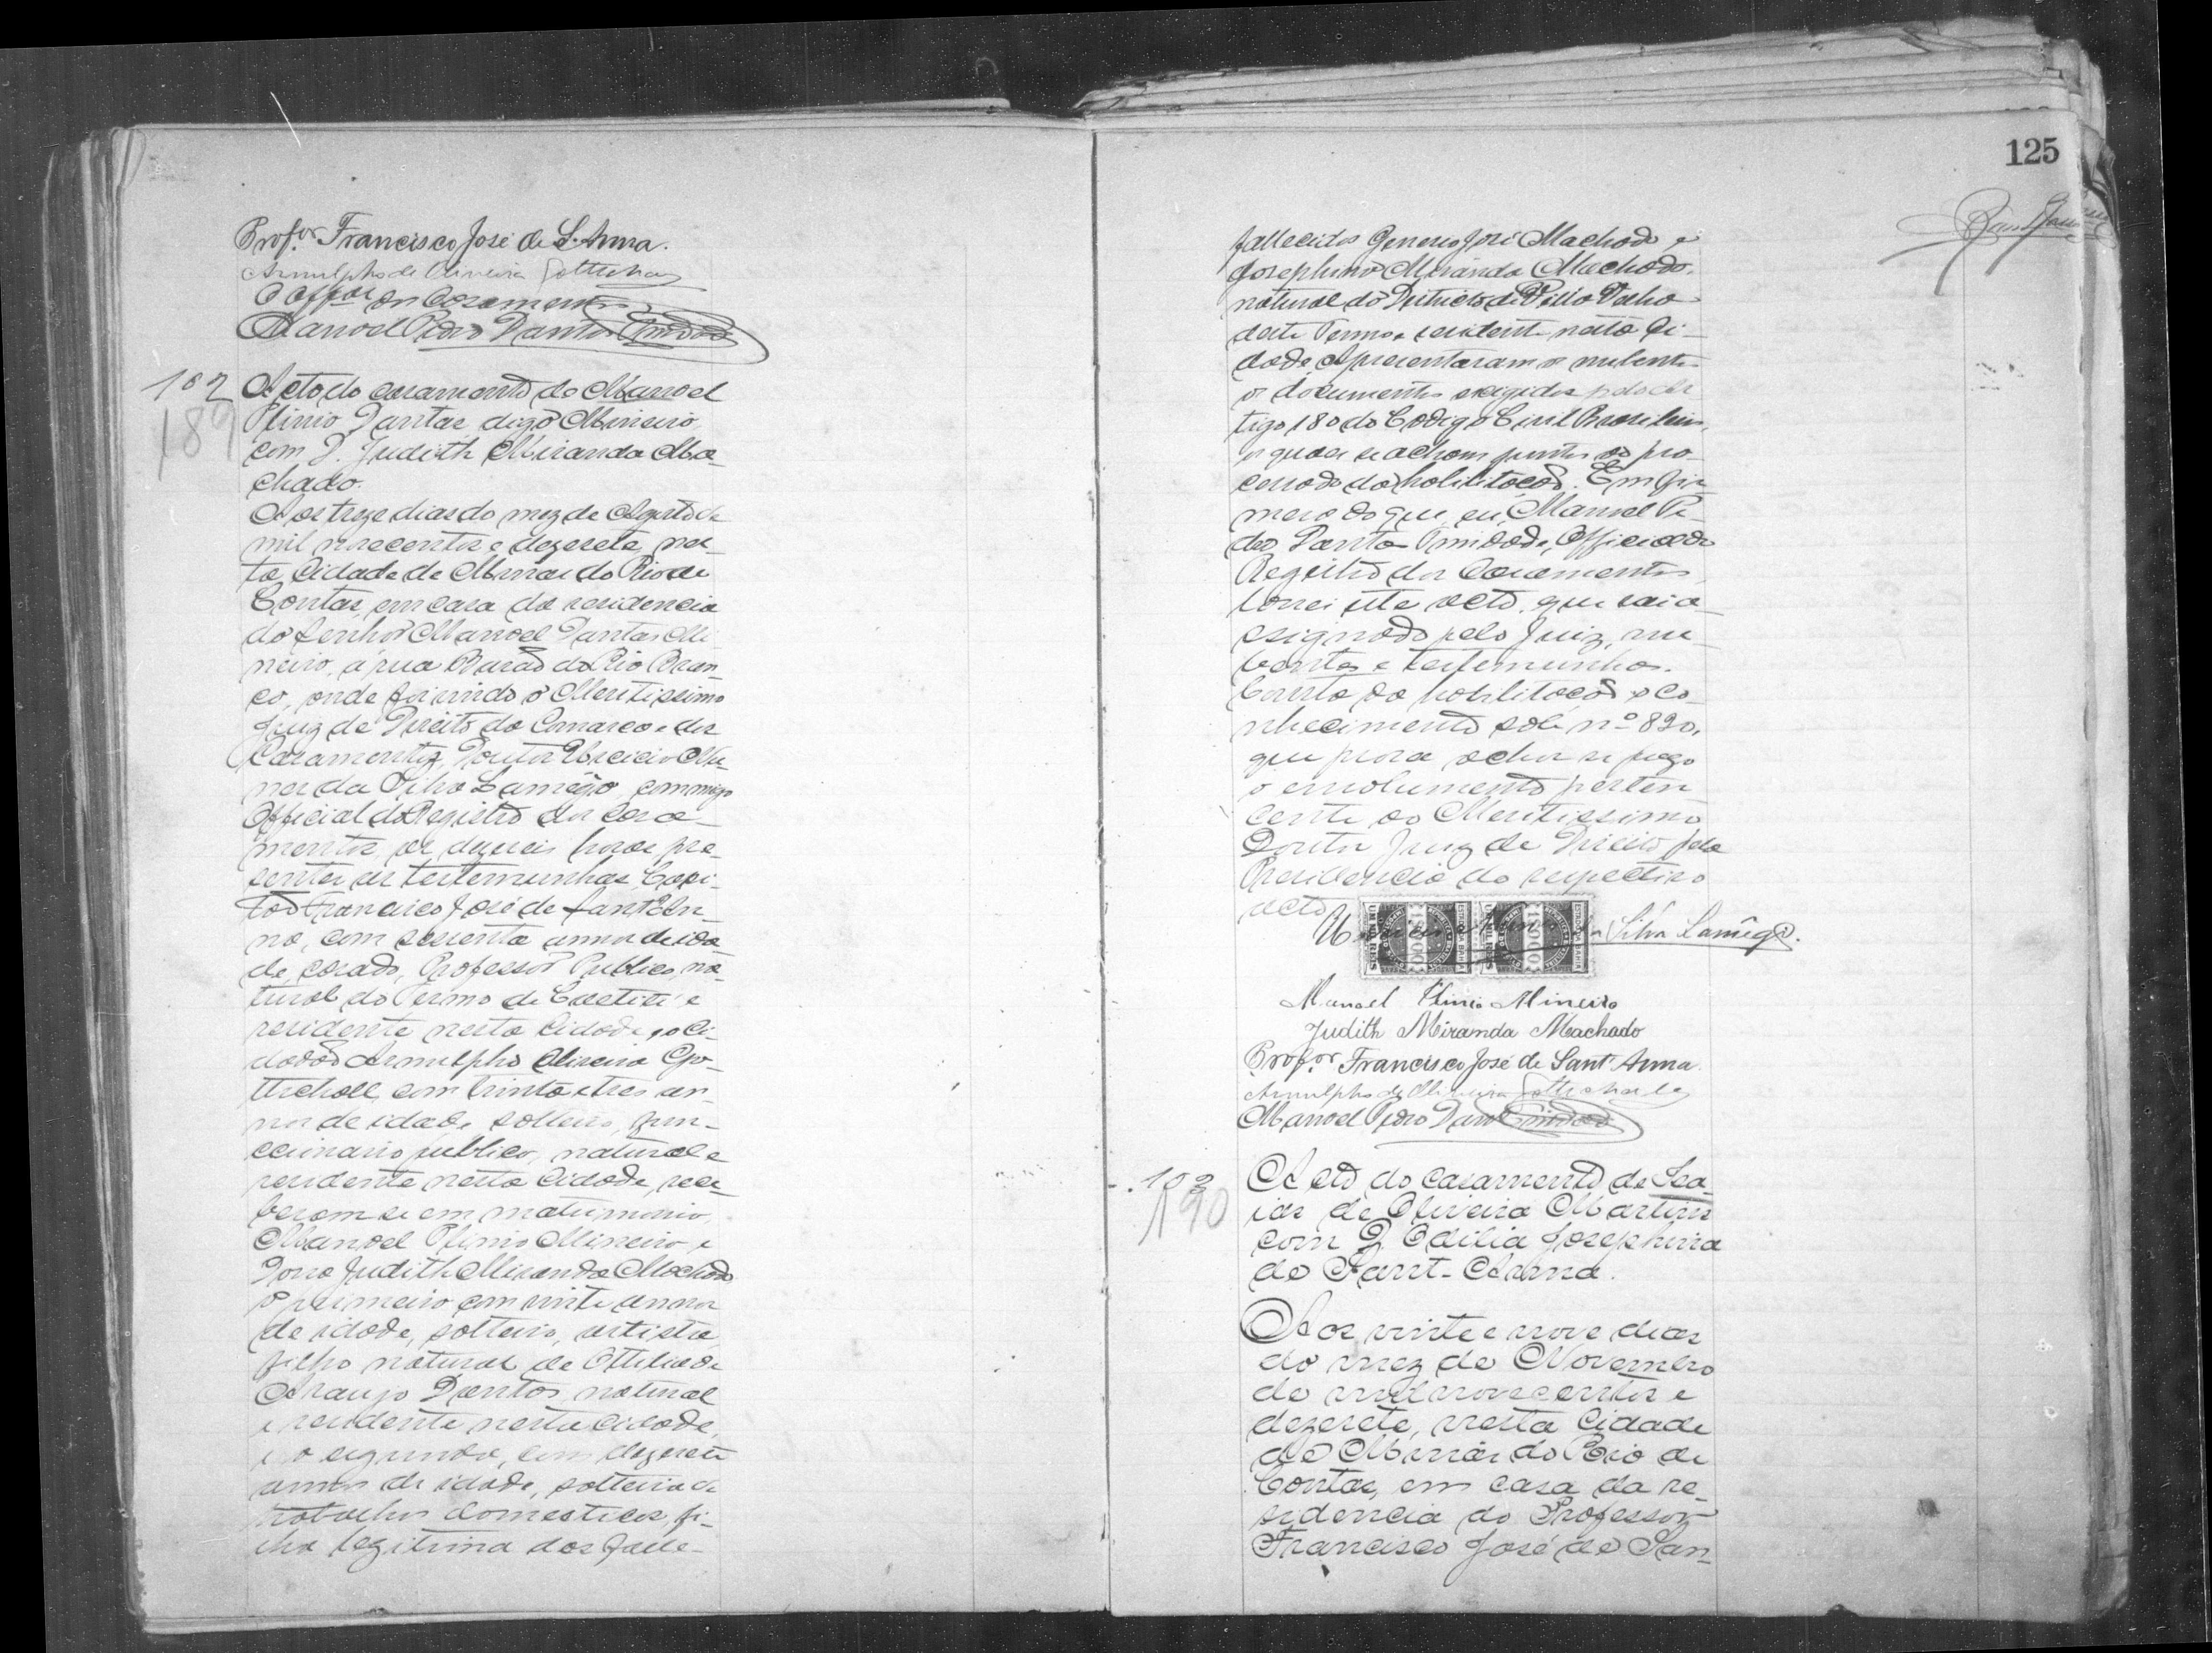 Prof.or Francisco José de S. Anna.
Arnulpho de Oliveira Gottschall
O Offial dos Casamentos
Manoel Pedro Dantas Trindade
102
189
Acto do casamento de Manoel
Plinio Dantas digo Mineiro
com D. Judith Miranda Ma-
chado.
Aos treze dias do mez de Agosto de
mil novecentos e dezesete, nes-
ta Cidade de Minas do Rio de
Contas, em casa da residencia
do Senhor Manoel Dantas Mi-
neiro, á rua Barão do Rio Bran-
co, onde foi vindo o Meritissimo
Juiz de Direito da Comarca e dos
Casamentos, Doutor Nu-
nes da Silva Lamêgo, commigo
Official do Registro dos Casa-
mentos, as dezeseis horas, pre-
sentes as testemunhas, Capi-
tão Francisco José de Sant'An-
na, com sessenta annos de ida-
de, casado, Professor Publico, na-
tural do Termo de Caetité e
residente nesta Cidade, e o Ci-
dadão Arnulpho Oliveira Go-
ttschall, com trinta e tres an-
nos de idade, solteiro, fun-
ccionario publico, natural e
residente nesta Cidade, rece-
beram se em matrimonio,
Manoel Plinio Mineiro e
Dona Judith Miranda Machado
o primeiro com vinte annos
de idade, solteiro, artista,
filho natural de Othilia de
Araujo Dantas, natural
e residente nesta Cidade,
e a segunda, com dezesete
annos de idade, solteira de
trabalhos domesticos, fi-
lha legitima dos falle-
125
fallecidos Generio José Machado e
Josephina Miranda Machado,
natural do Districto de Villa Velha
deste Termo e residente nesta Ci-
dade. Apresentaram os nubentes
os documentos exigidos pelo ar
tigo 180 do Codigo Civil Brasileiro,
os quaes se acham juntos ao pro-
cesso da habilitação. Em fir
mesa do que eu, Manoel Pe-
dro Dantas Trindade, Official do
Registro dos Casamentos
lavrei este acto, que vai a-
ssignado pelo Juiz, nu-
bentes e testemunhas.
Consta da habilitação o co-
nhecimento sob nº 890,
que prova achar se pago
o emolumento perten
cente ao Meritissimo
Doutor Juiz de Direito pela
Presidencia do respectivo
acto
Nunes da Silva Lamêgo.
ESTADO DA BAHIA
1$000
UM MIL REIS
ESTADO DA BAHIA
1$000
UM MIL REIS
Manoel Plinio Mineiro
Judith Miranda Machado
Prof.or Francisco José de Sant'Anna
Arnulpho de Oliveira Gottschall
Manoel Pedro Dantas Trindade
103
190
Acto do casamento de Isa-
ias de Oliveira Martins
com D. Edilia Josephina
de Sant-Anna.
Aos vinte e nove dias
do mez de Novembro
de mil novecentos e
dezesete, nesta Cidade
de Minas do Rio de
Contas, em casa da re-
sidencia do Professor
Francisco José de San-